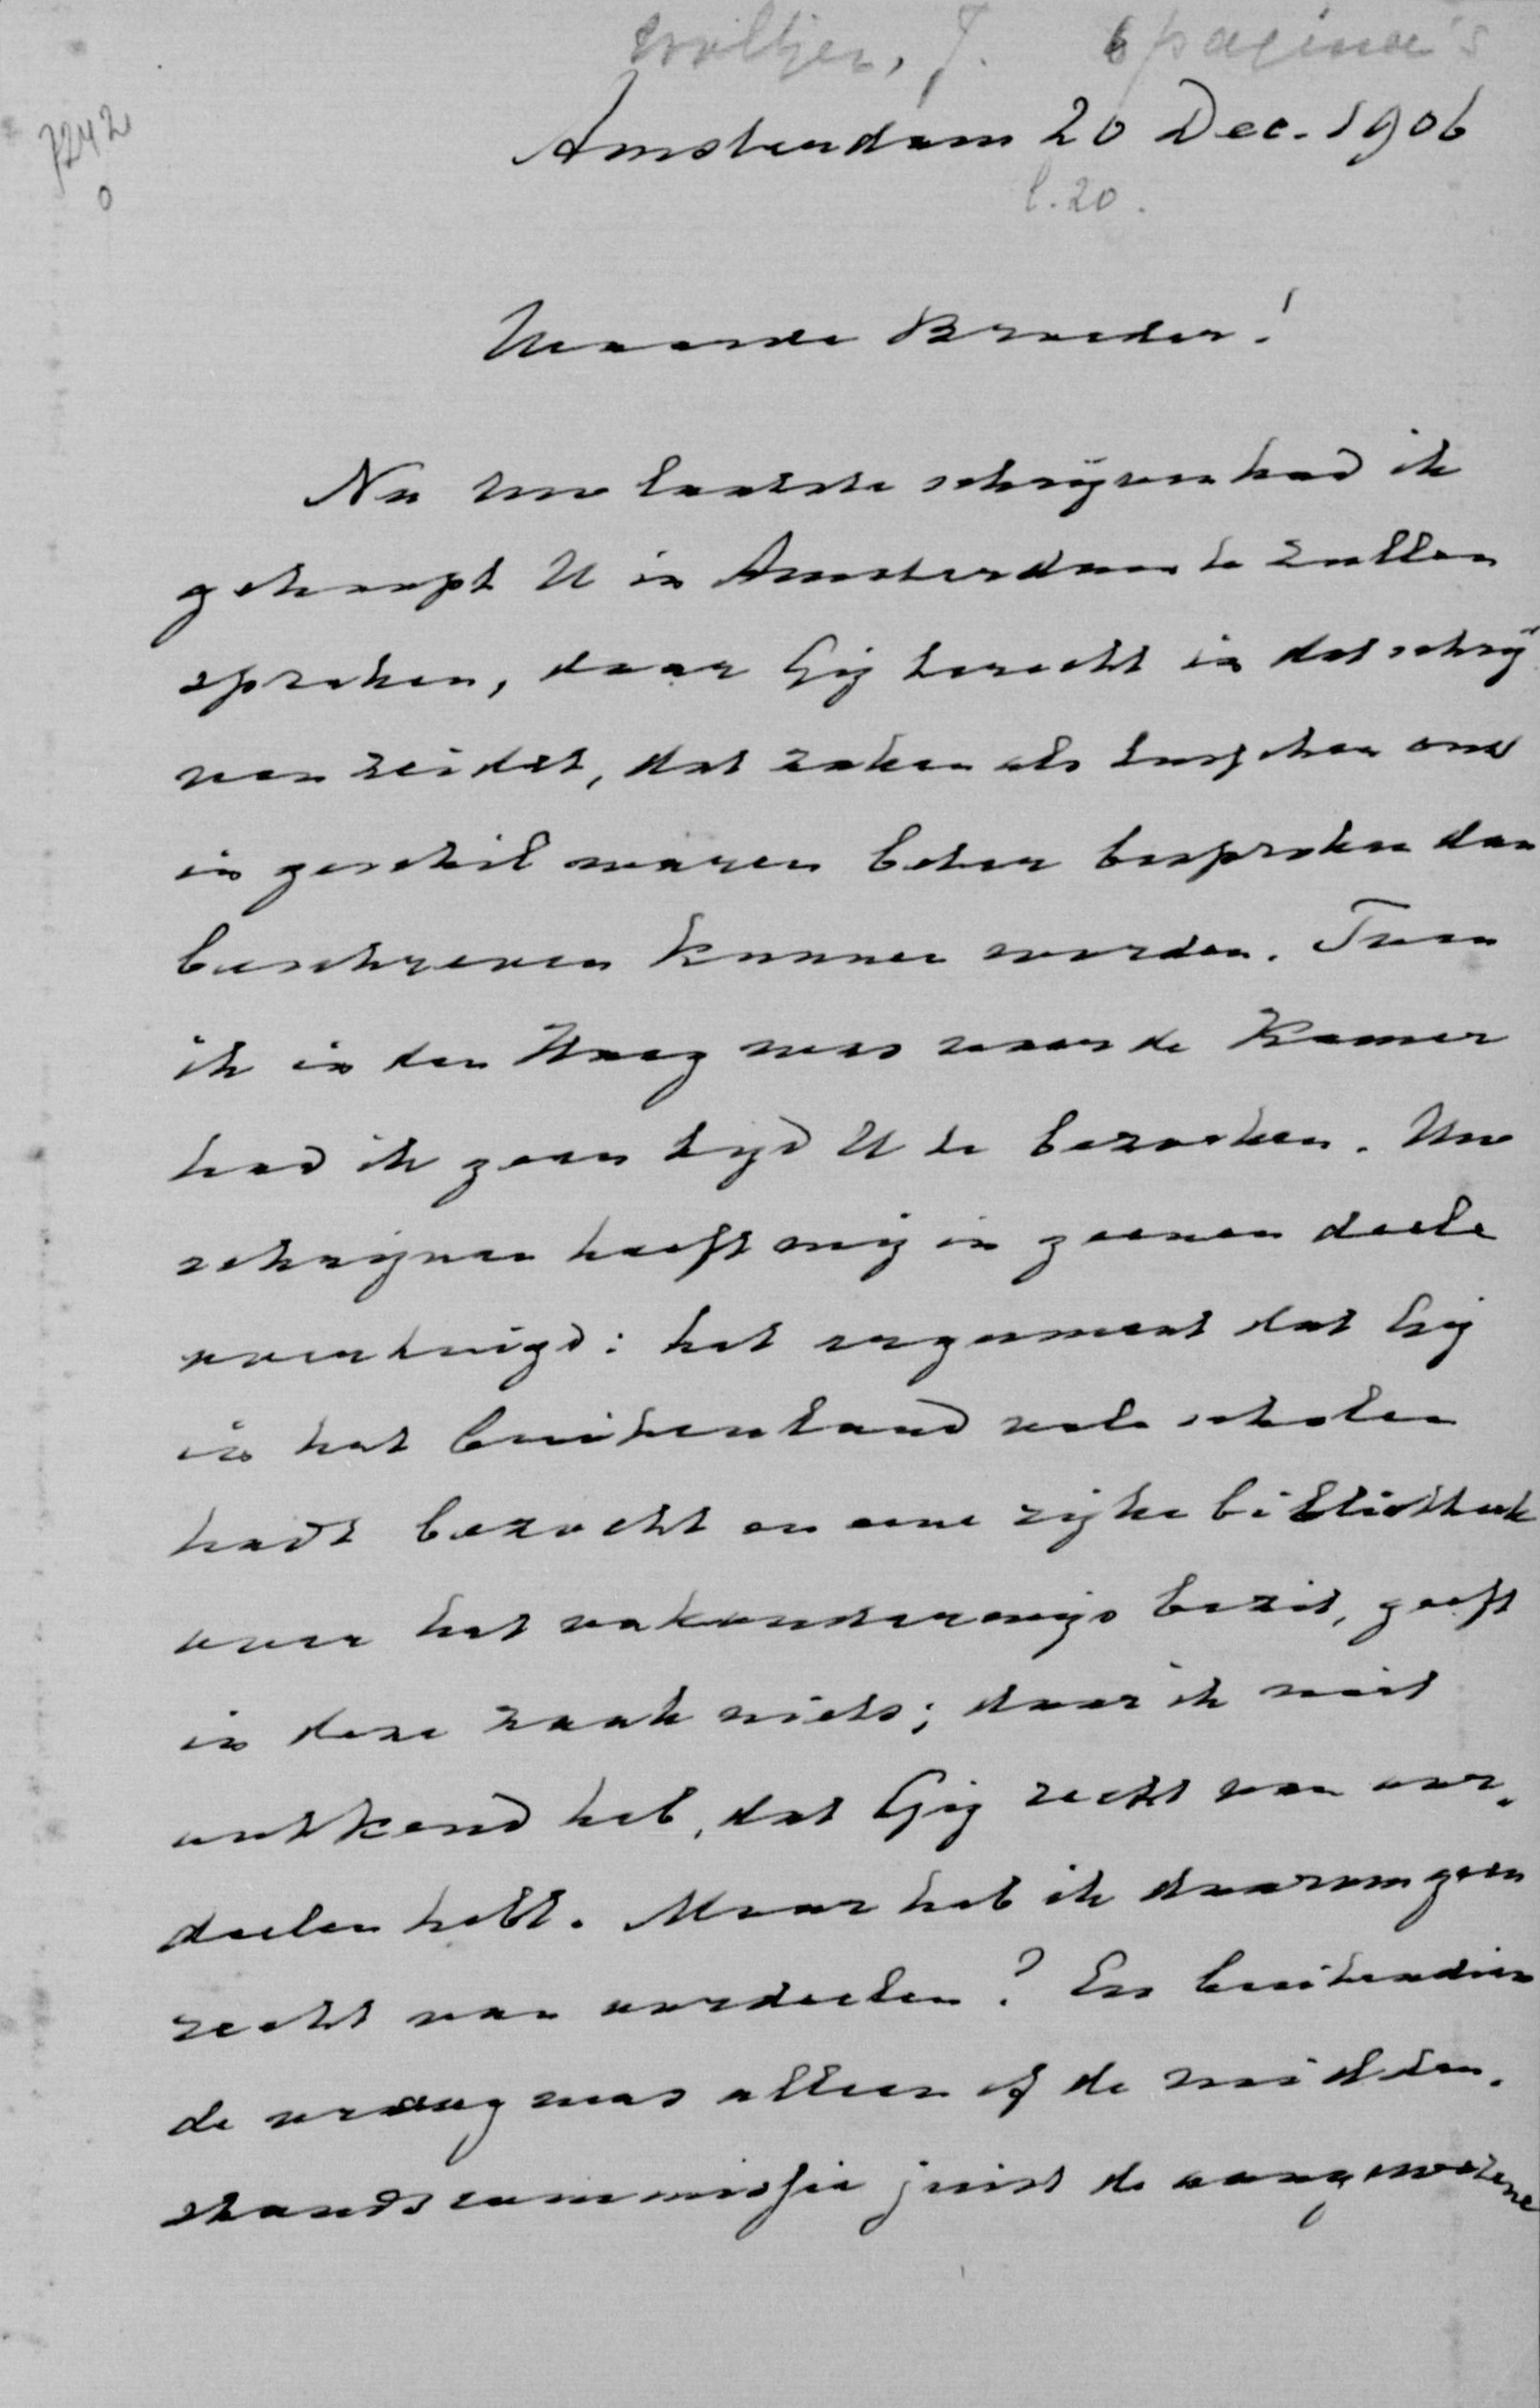 Woltjer, J. 6 pagina's
7242
0
Amsterdam 20 Dec. 1906
l. 20.
Waarde Broeder!
Na uw laatste schrijven had ik
gehoopt U in Amsterdam te zullen
spreken, daar Gij terecht in dat schrij
ven zeidet, dat zaken als tusschen ons
in geschil waren beter besproken dan
beschreven kunnen worden. Toen
ik in den Haag was voor de Kamer
had ik geen tijd U te bezoeken. Uw
schrijven heeft mij in geenen deele
overtuigd: het argument dat Gij
in het buitenland vele scholen
hadt bezocht en eene rijke bibliotheek
over het vakonderwijs bezit, geeft
in deze zaak niets; daar ik niet
ontkend heb, dat Gij recht van oor-
deelen hebt. Maar heb ik daarom geen
recht van oordeelen? En buitendien
de vraag was alleen of de midden-
standscommissie juist de aangewezene